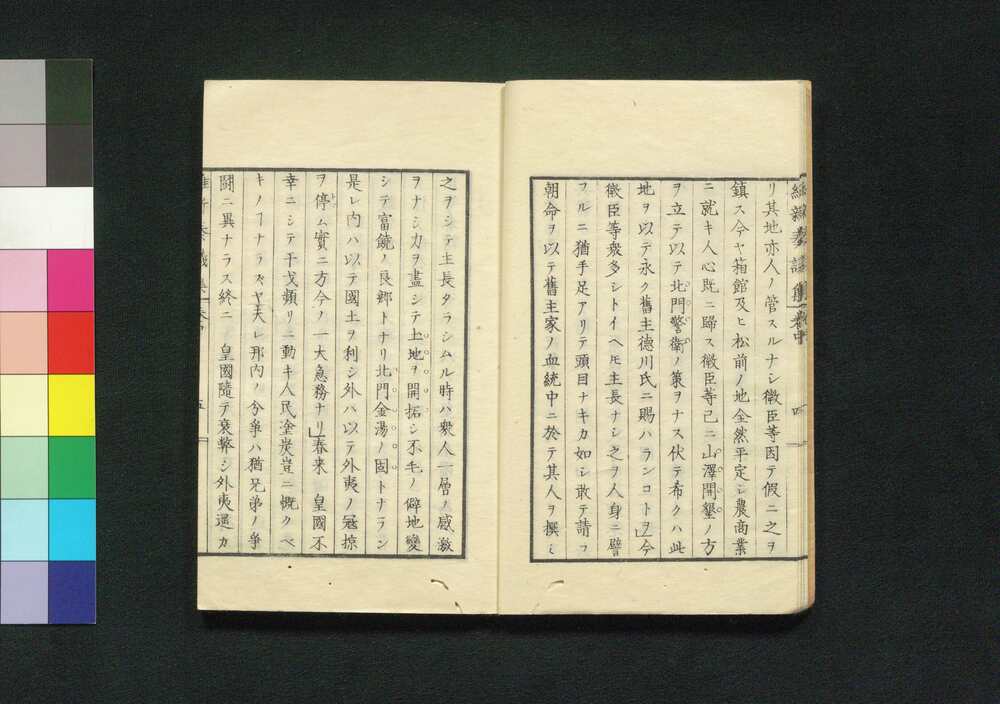 リ其地亦人ノ管スルナシ徴臣等因テ假ニ之ヲ
鎮ス今ヤ箱館及ヒ松前ノ地全然平定シ農商業
ニ就キ人心既ニ歸ス徴臣等已ニ山澤開墾ノ方
ヲ立テ以テ北門警衛ノ策ヲナス伏テ希クハ此
地ヲ以テ永ク舊主德川氏ニ賜ハランコトヲ」今
徴臣等衆多シトイヘ𪜈主長ナシ之ヲ人身ニ譬
フルニ猶手足アリテ頭目ナキカ如シ敢テ請フ
朝命ヲ以テ舊主家ノ血統中ニ於テ其人ヲ撰ミ
之ヲシテ主長タラシムル時ハ衆人一層ノ感激
ヲナシ力ヲ盡シテ土地ヲ開拓シ不毛ノ僻地變
シテ富饒ノ良郷トナリ北門金湯ノ固トナラン
是レ内ハ以テ國土ヲ利シ外ハ以テ外夷ノ冦掠
ヲ停ム實ニ方今ノ一大急務ナリ」春来 皇國不
幸ニシテ干戈頻リニ動キ人民塗炭豈ニ慨クヘ
キノヿナラスヤ夫レ邦内ノ分爭ハ猶兄弟ノ爭
鬪ニ異ナラス終ニ 皇國隨テ衰弊シ外夷選カ